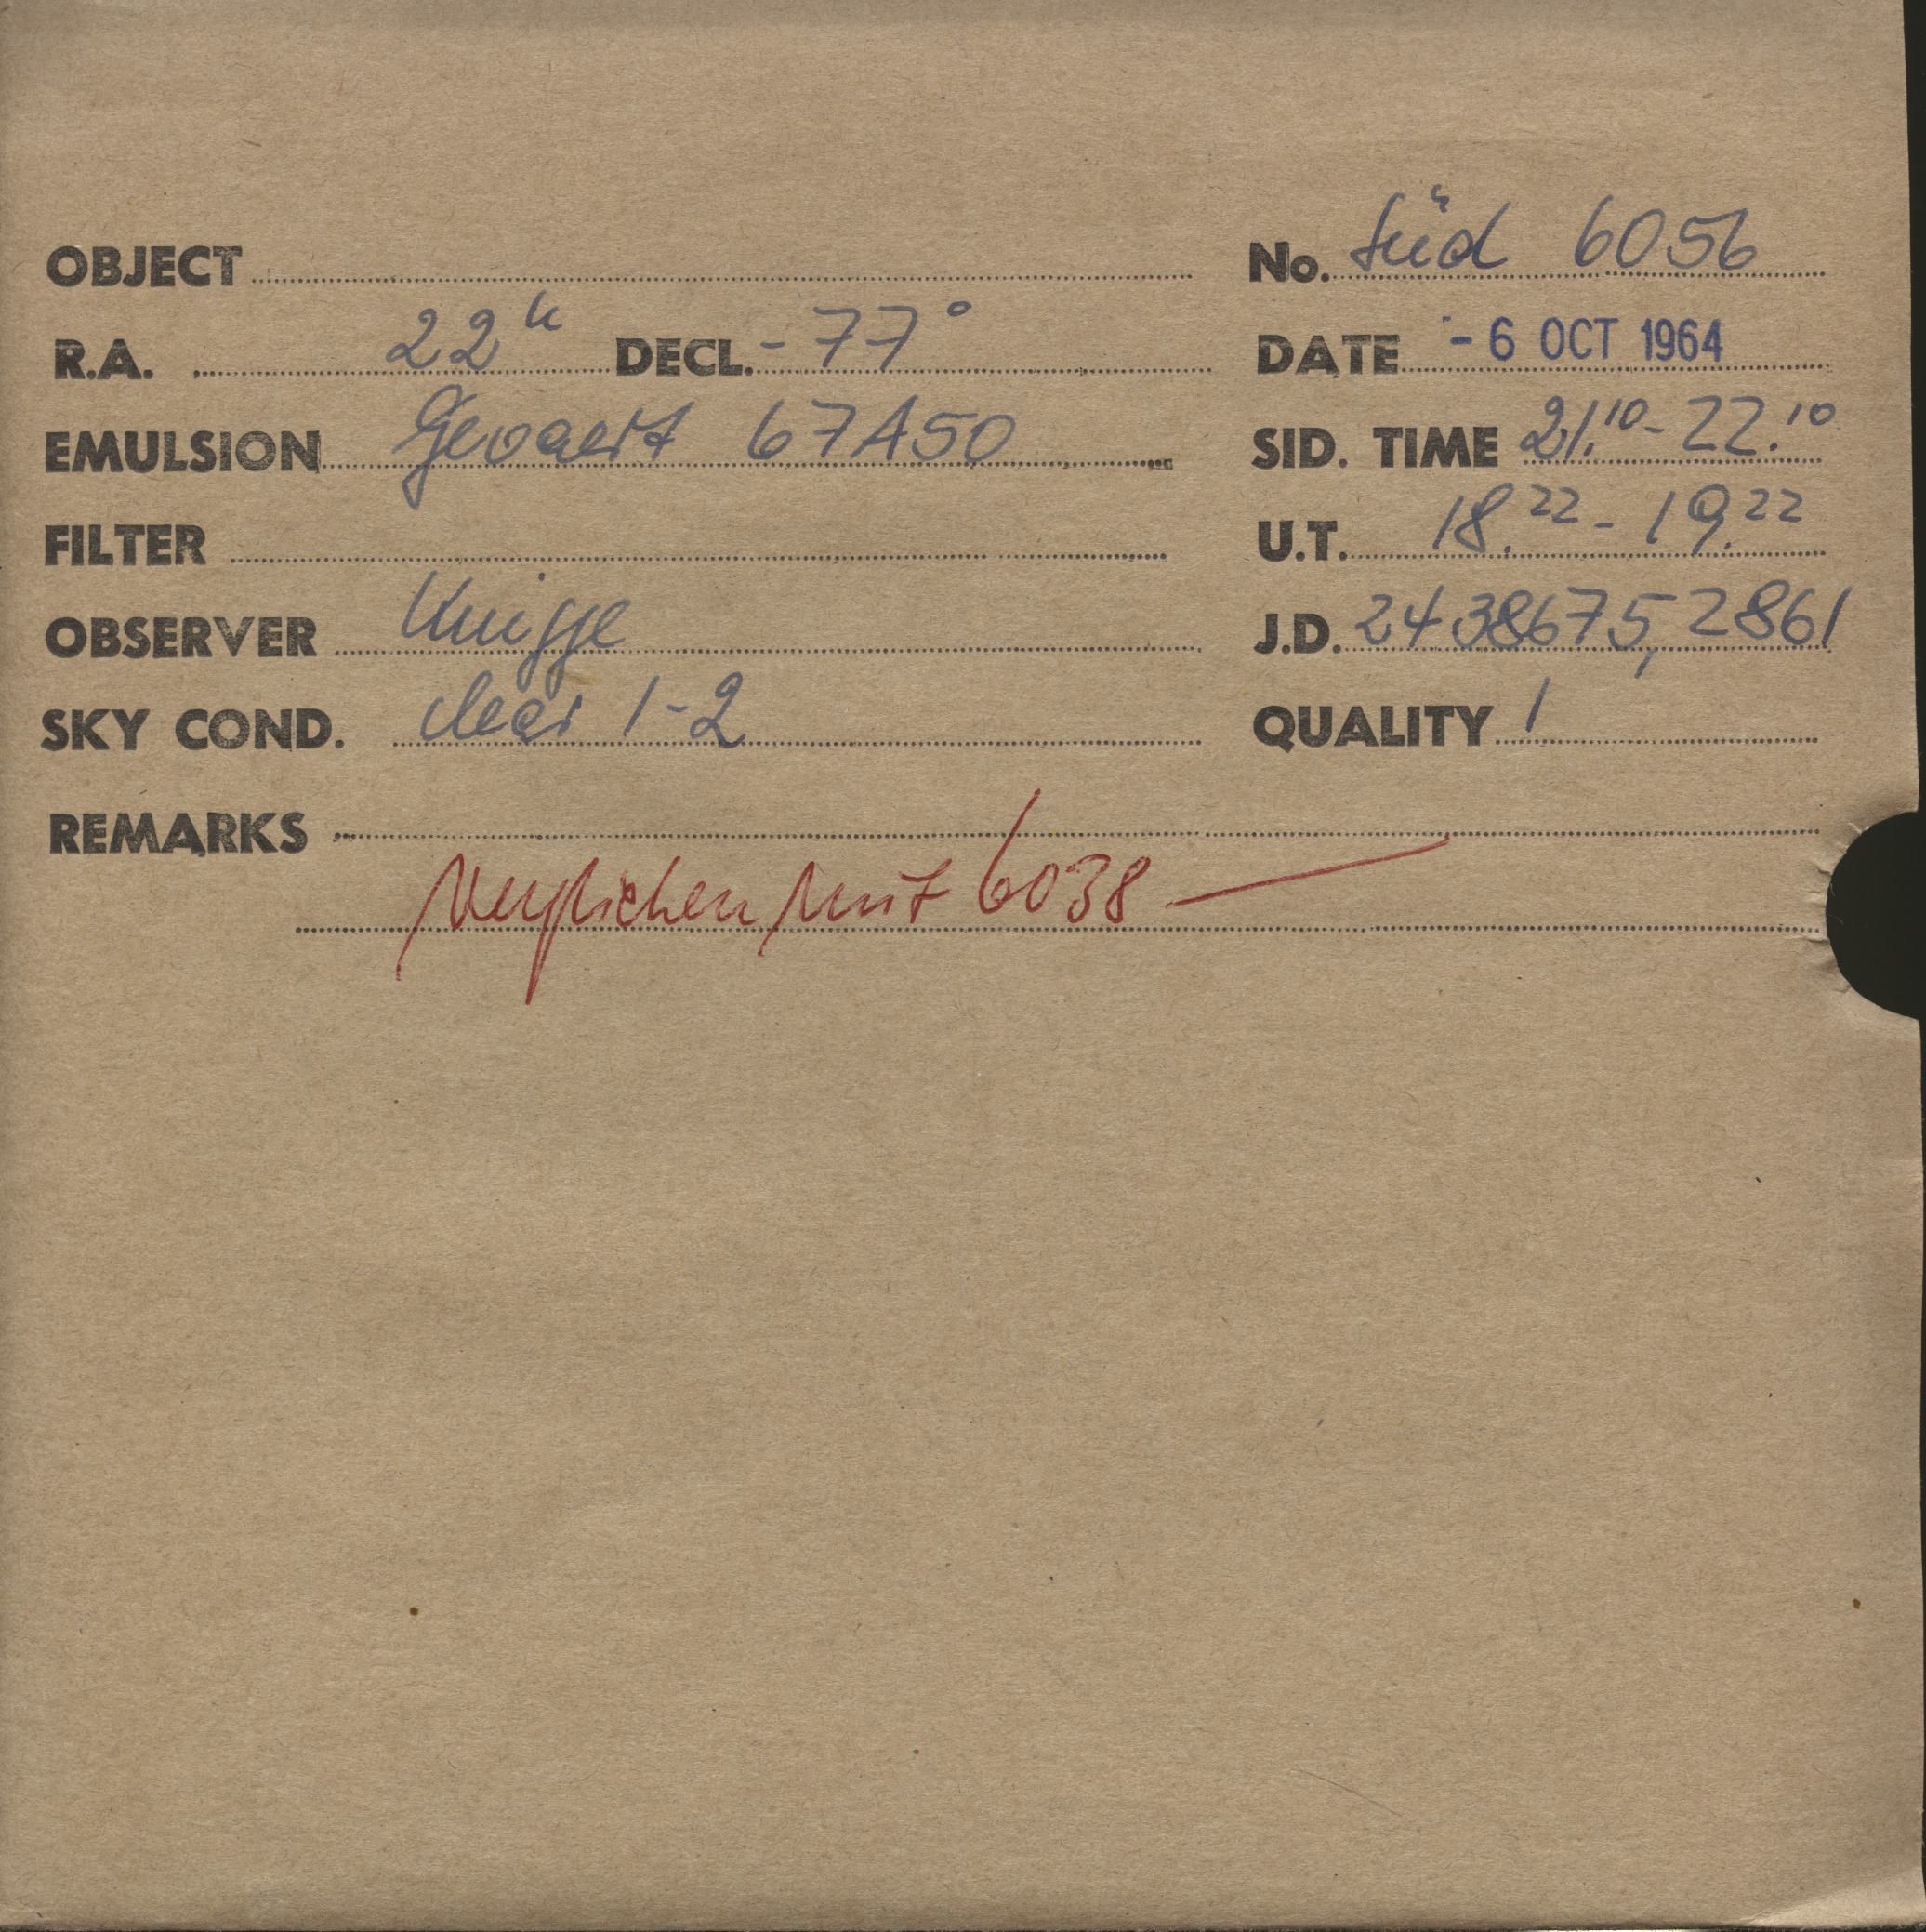 OBJECT No. Süd 6056
R.A. 22h DECL. -77° DATE - 6 OCT 1964
EMULSION Gevaert 67A50 SID. TIME 21.10 - 22.10
FILTER U.T. 18.22 - 19.22
OBSERVER Knigge J.D. 2438675,2861
SKY COND. clear 1-2 QUALITY 1
REMARKS
Verglichen mit 6038 —